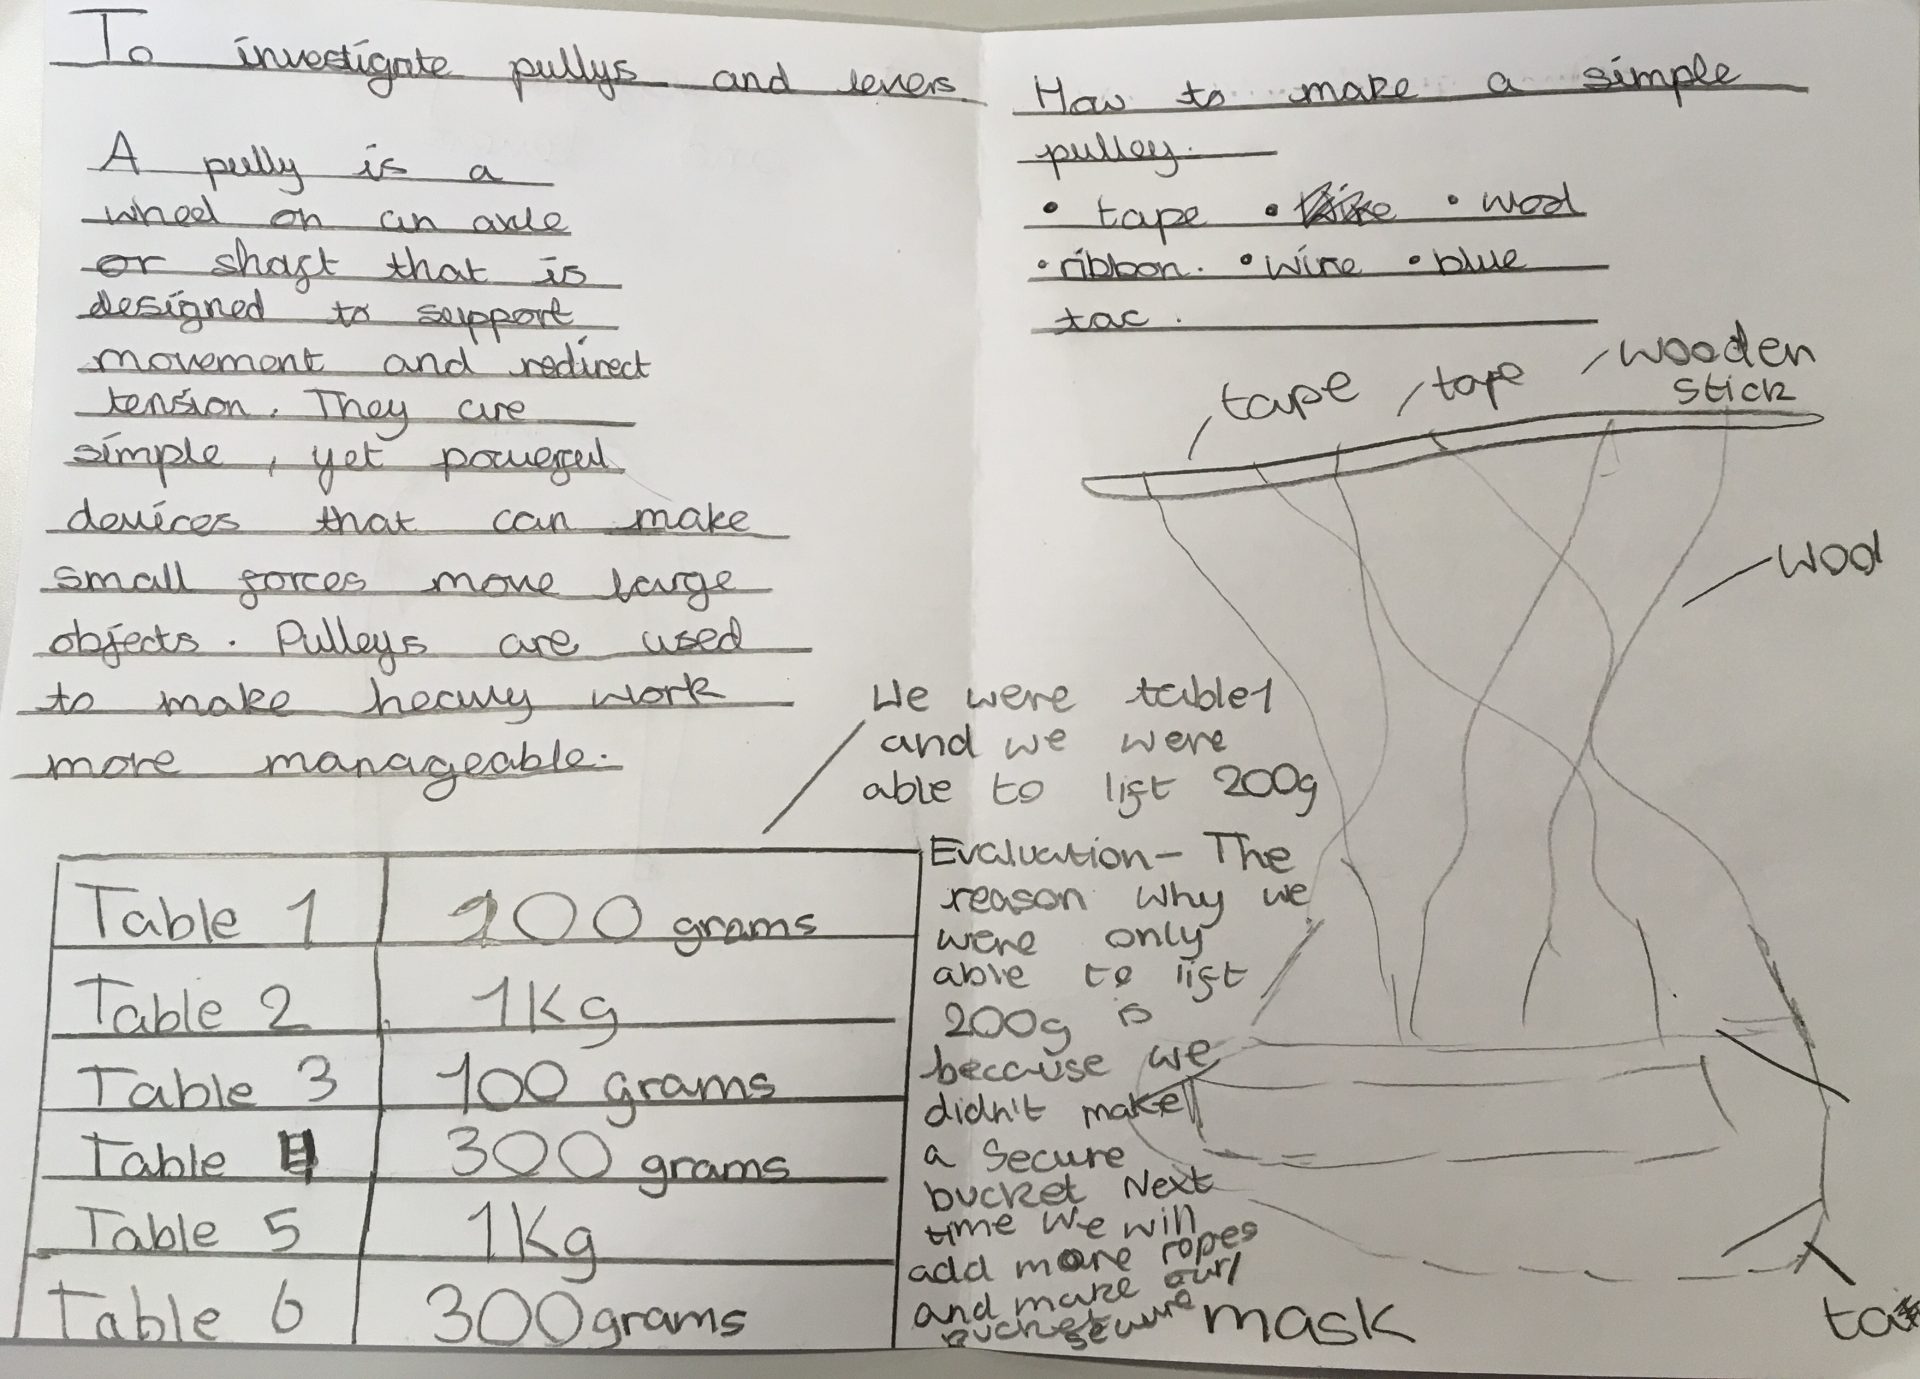 To investigate pullys and levers
A pully is a
wheel on an axle
or shaft that is
designed to support
movement and redirect
tension. They are
simple, yet powerful
devices that can make
small forces move large
objects. Pulleys are used
to make heavy work
more manageable.
We were table 1
and we were
able to lift 200g
Table 1 200 grams
Table 2 1Kg
Table 3 100 grams
Table 4 300 grams
Table 5 1Kg
Table 6 300 grams
Evaluation - The
reason why we
were only
able to lift
200g is
because we
didn't make
a secure
bucket Next
time we will
add more ropes
and make our
bucket secure
How to make a simple
pulley.
• tape • • wool
• ribbon. • wire • blue
tac.
tape
tape
wooden
stick
wool
mask